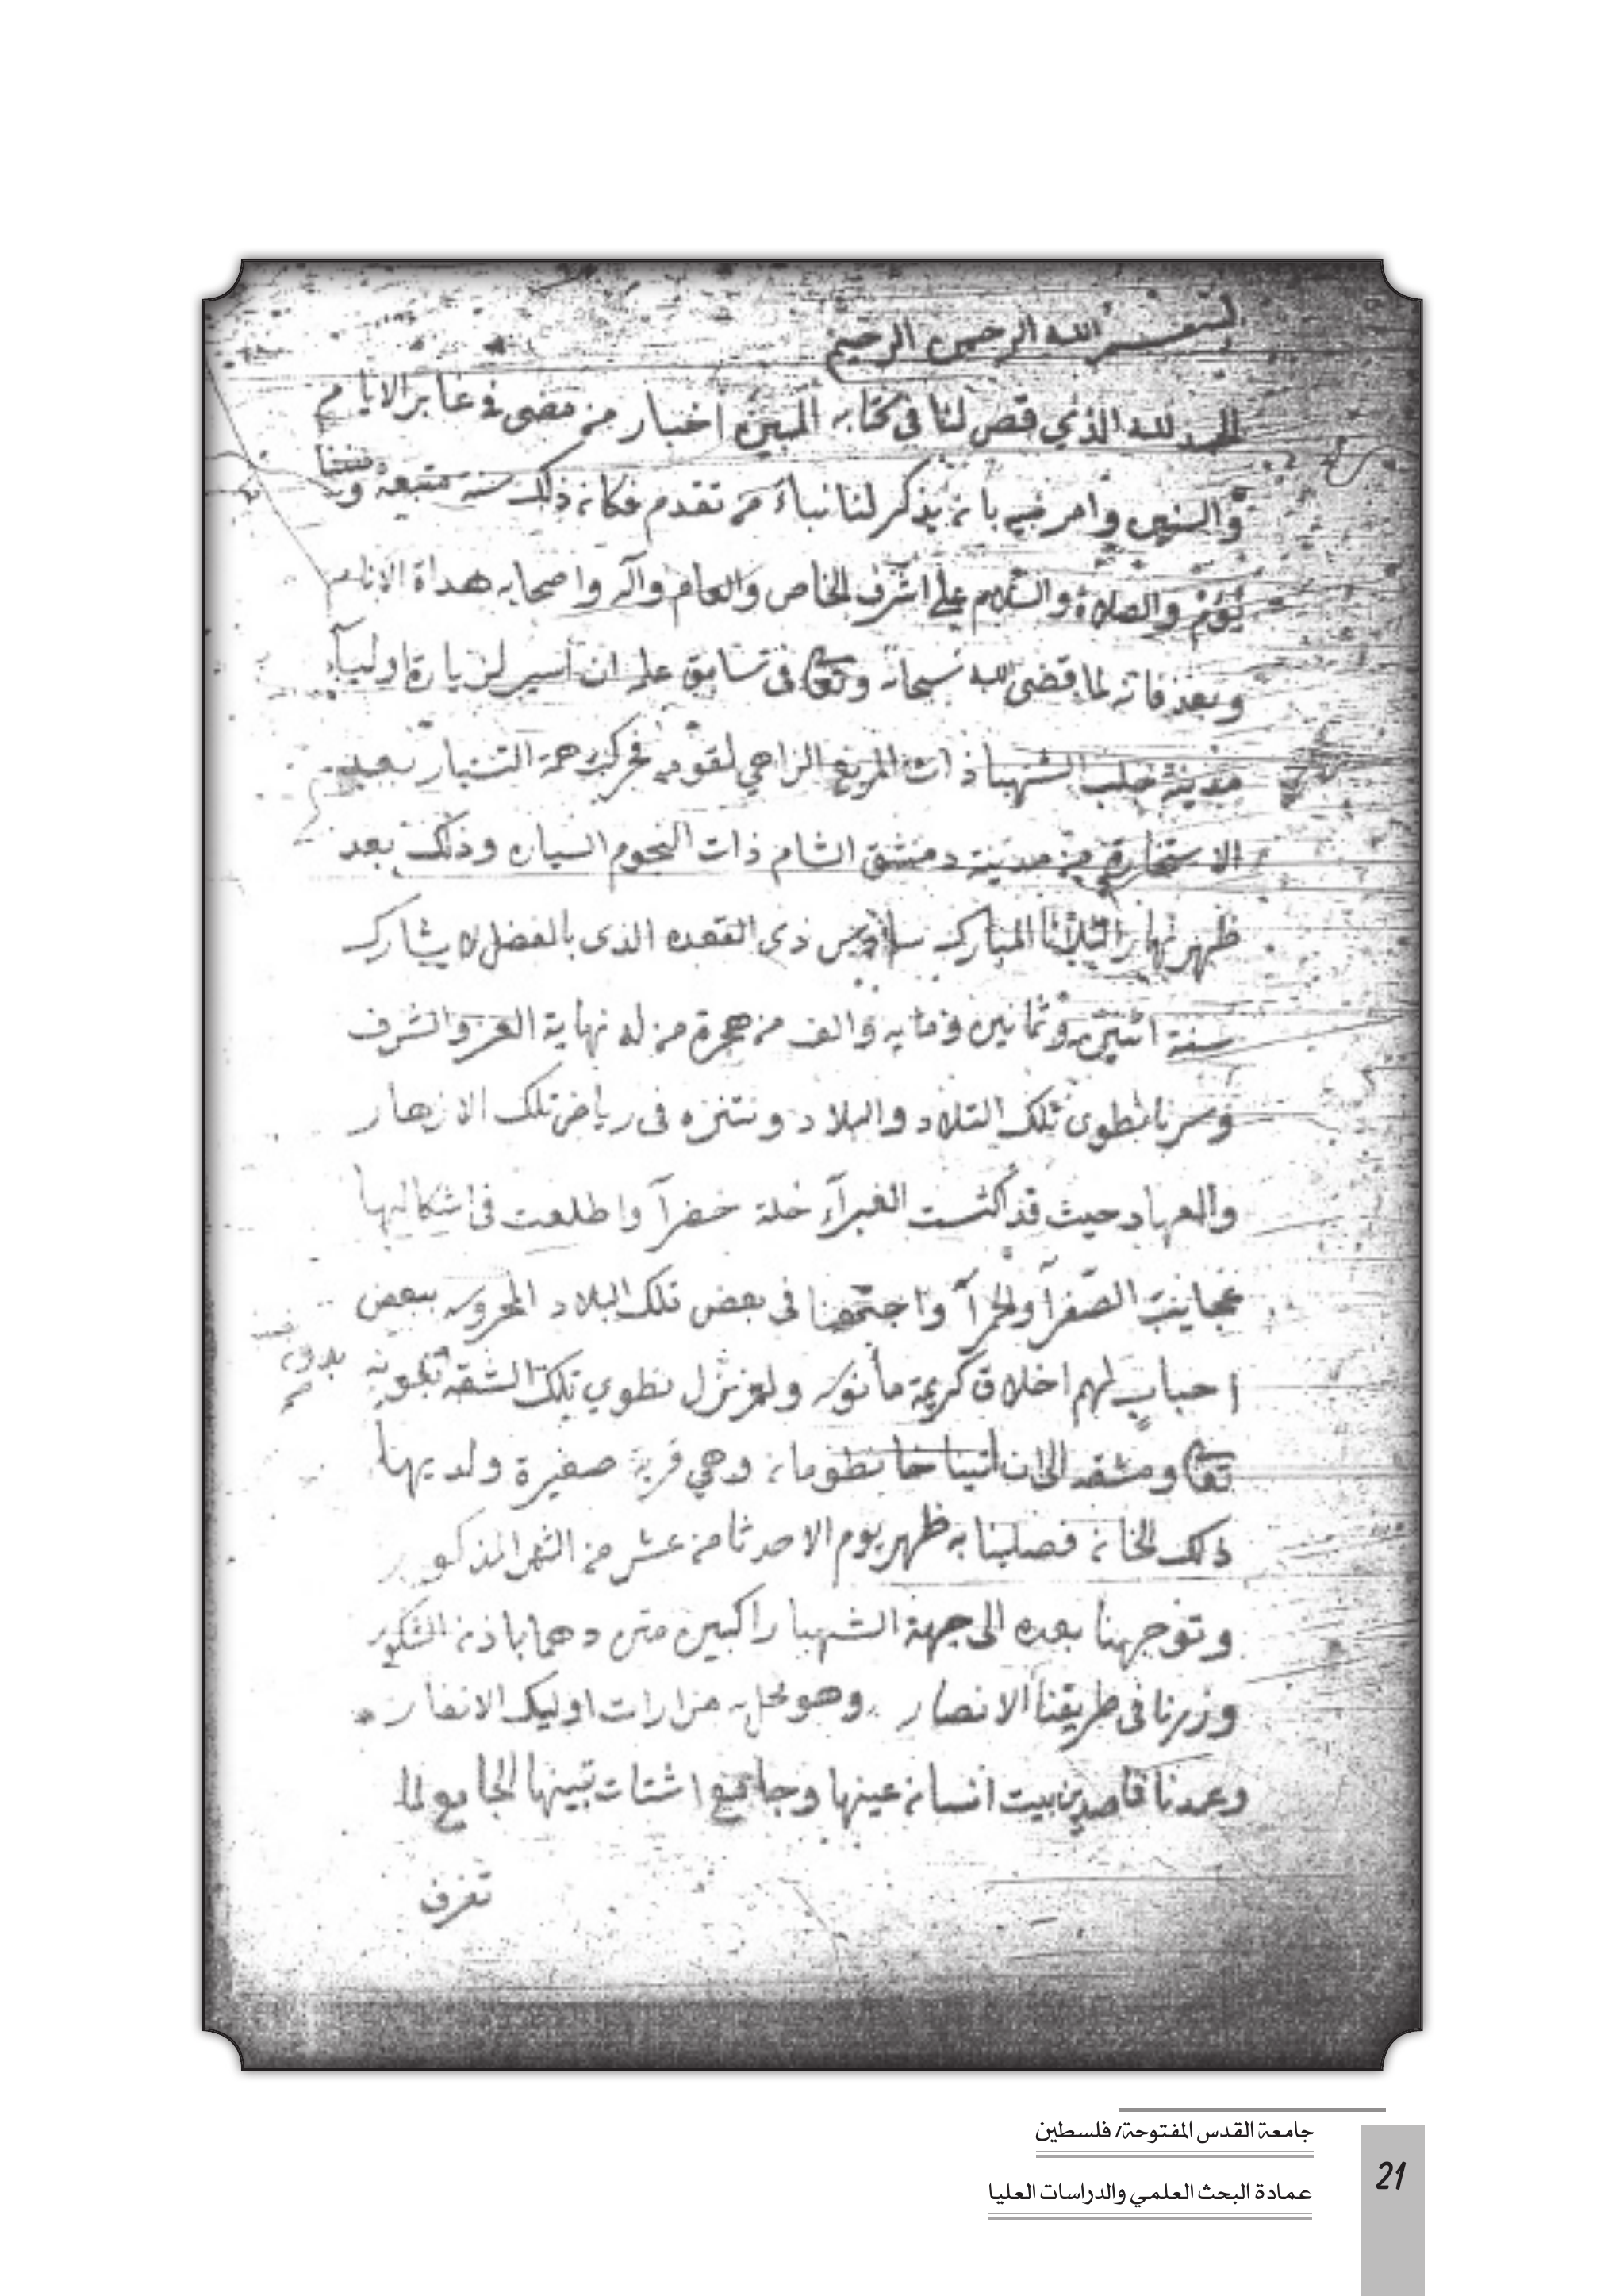 بسم الله الرحمن الرحيم
الحمد لله الذي قص لنا في كتابه المبين اخبار من مضى في غابر الايام
والسنين وامر نبيه بان يذكر لنا نباء من تقدم فكان ذلك سنة متبعة
والصلاة والسلام على اشرف الخاص والعام واله واصحابه هداة الانام
وبعد فانه لما قضى الله سبحانه وتعالى في سابق علمه ان اسير لزيارة اوليآء
مدينة حلب الشهبا ذات المربع الزاهي
الاستخارة من مدينة دمشق الشام ذات النجوم السياره وذلك بعد
ظهر نهار الثلاثا المبارك سادس ذى القعده الذى بالفضل لا يشارك
سنة اثنين وثمانين ومايه والف من هجرة من له نهاية العز والشرف
وسرنا نطوى تلك التلاد والبلاد ونتنزه فى رياض تلك الازهار
والمهاد حيث قد اكتست الغبرآء حلة خضرآ واطلعت فى اشكالها
عجايب الصفرآ والحمرآ واجتمعنا فى بعض تلك البلاد المحروسه ببعض
احباب لهم اخلاق كريمة مأنوسه ولم نزل نطوي تلك الشقه بعونه
بلا
صح
تعالى ومشقه الى ان اتينا خان طومان وهي قرية صغيرة ولديها
ذلك الخان فصلينا به ظهر يوم الاحد ثامن عشر من الشهر المذكور
وتوجهنا بعده الى جهة الشهبا راكبين متن دهما باذن الشكور
وزرنا فى طريقنا الانصارى وهو محل به مزارات اوليك الانفار
وعمدنا قاصدين بيت انسان عينها وجامع اشتات بينها الجامع لما
تفرق
جامعة القدس المفتوحة/ فلسطين
عمادة البحث العلمي والدراسات العليا
21